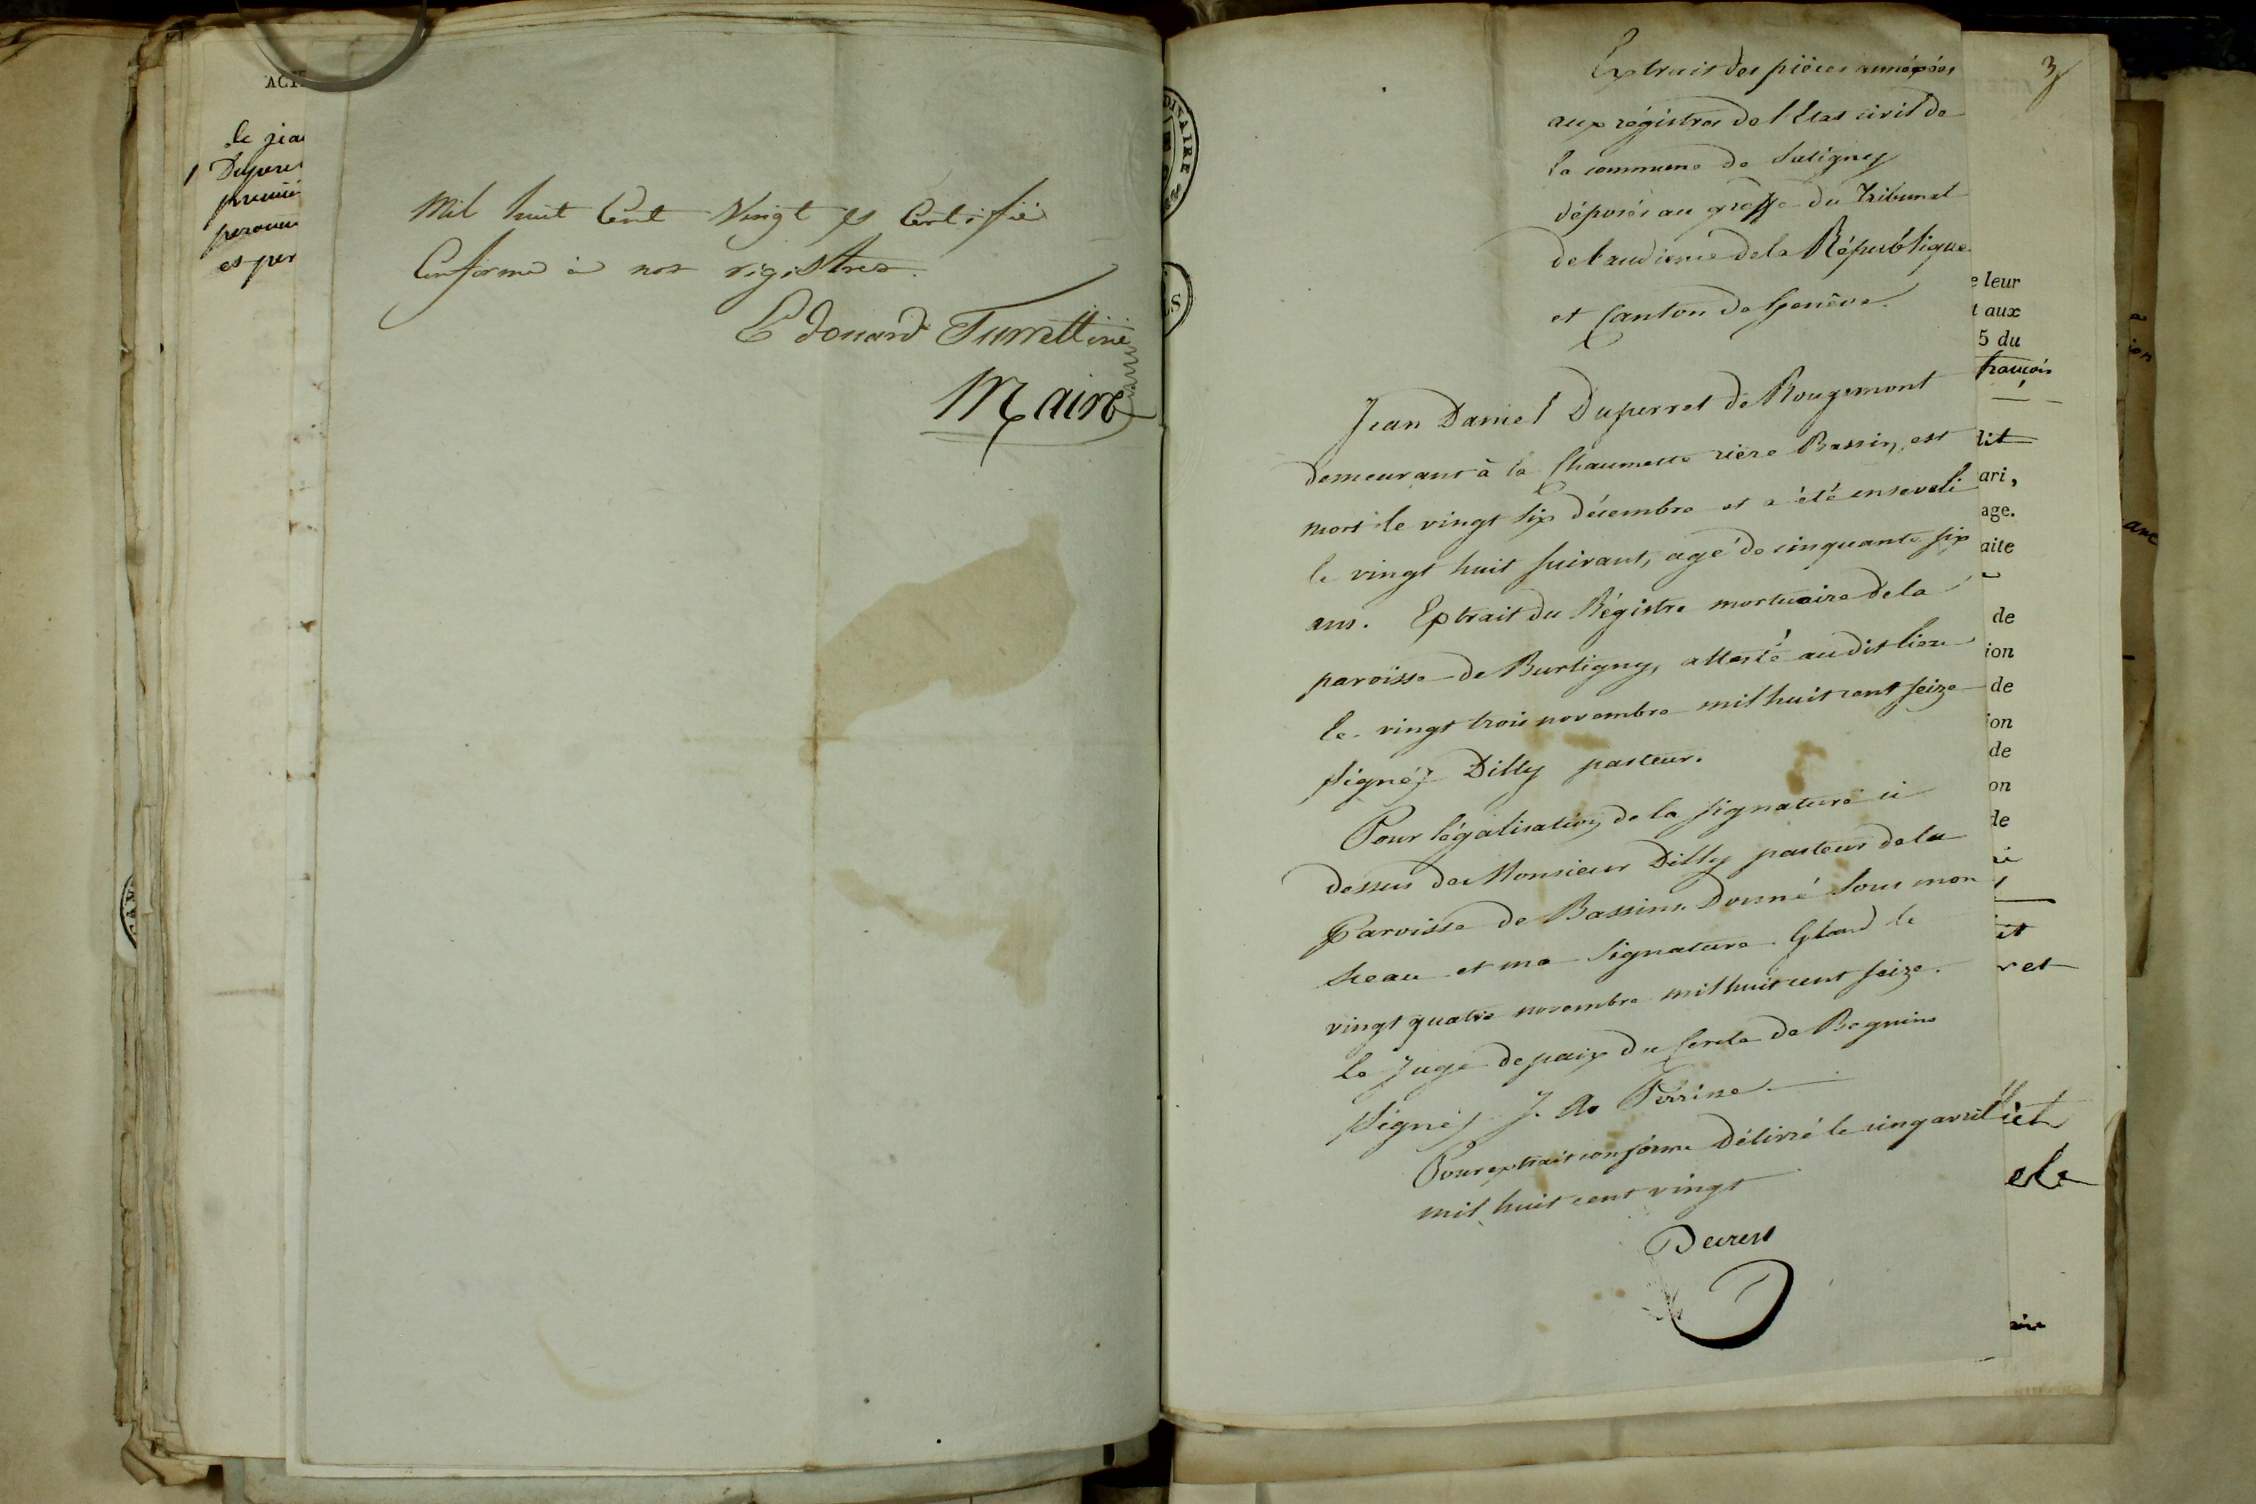 ACTE
le
Duperret
premié
es per
Mil huit Cent Vingt & Certifié
Conforme à nos régistres.
Edouard Turrettini
Maire
DINAIRE
3
Extrait des pièces annéxées
aux régistres de l'Etat civil de
la commune de Satigny
déposés au greffe du Tribunal
de l'audience de la République
et Canton de Genève.
Jean Daniel Duperret de Rougemont
demeurant à la Chaumette rière Bassin, est
mort le vingt six décembre et a été enseveli
le vingt huit suivant, agé de cinquante six
ans. Extrait du Régistre mortuaire de la
paroisse de Burtigny, attesté au dit lieu
le vingt trois novembre mil huit cent seize
signé, Dilly pasteur.
Pour légalisation de la signature ci
dessus de Monsieur Dilly pasteur de la
Paroisse de Bassins. Donné sous mon
sceau et ma signature. Gland le
vingt quatre novembre mil huit cent seize.
le Juge de paix du Cercle de Begnins
signé, J. As Perrine
Pour extrait conforme délivré le cinq avril
mil huit cent vingt
e leur
t aux
5 du
françois
dit
ari,
age.
aite
de
ion
de
ion
de
on
de
et
ret
et
ele